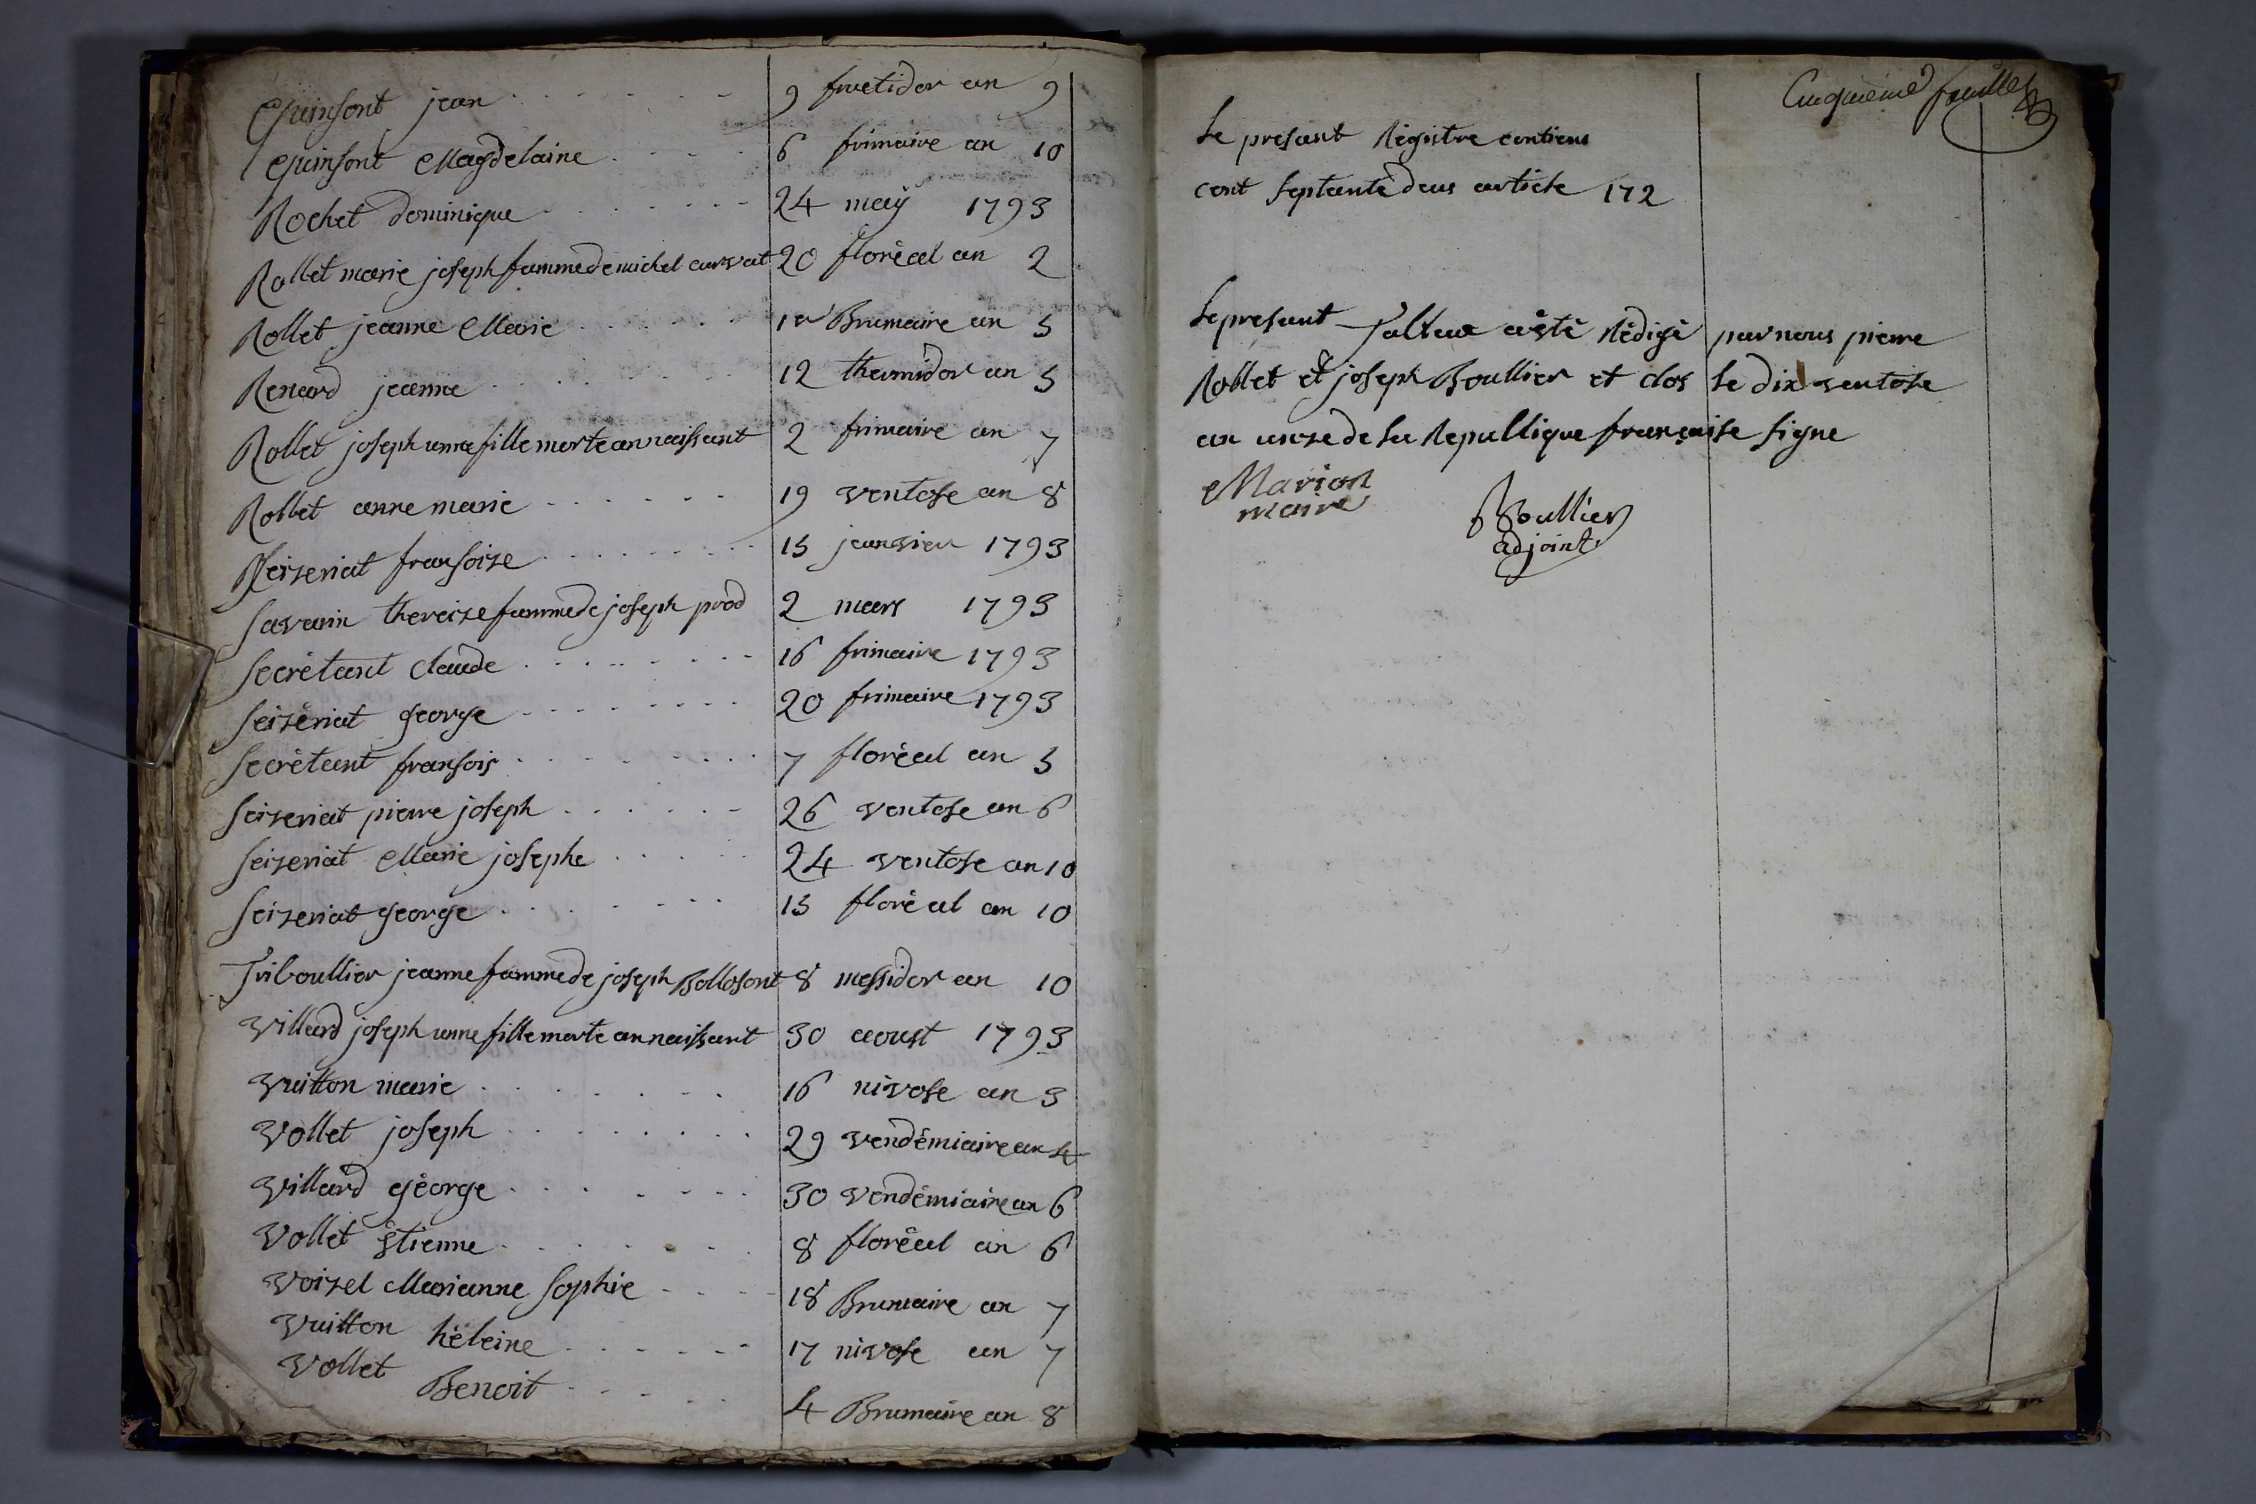 quinsont jean 9 fructidor an 9
quinsont Magdelaine 6 frimaire an 10
Rochet dominique 24 may 1793
Rollet marie joseph famme de michel carvat 20 floréal an 2
Rollet jeanne Marie 1er Brumaire an 5
Renard jeanne 12 thermidor an 5
Rollet joseph unne fille morte an naissant 2 frimaire an 7
Rollet anne marie 19 ventose an 8
Reizeriat fransoize 15 janvier 1793
Savarin thereize famme de joseph prod 2 mars 1793
Secrétant claude 16 frimaire 1793
Seizériat george 20 frimaire 1793
Secrétant fransois 7 floréal an 5
Seizeriat pierre joseph 26 ventose an 6
Seizeriat Marie josephe 24 ventose an 10
Seizeriat george 15 floréal an 10
Triboullier jeanne famme de joseph Bollosont 8 messidor an 10
Villard joseph unne fille morte an naissant 30 aoust 1793
Vuitton marie 16 nivose an 3
Vollet joseph 29 vendémiaire an 4
Villard géorge 30 vendémiaire an 6
Vollet Étienne 8 floréal an 6
Voizel Marianne Sophie 18 Brumaire an 7
Vuitton héleine 17 nivose an 7
Vollet Benoit 4 Brumaire an 8
Cinquième feuillet
Le presant Régistre contiens
cent septante deus article 172
Le presant Tableau a été Rédigé par nous pierre
Rollet et joseph Boullier et clos le dix ventose
an unze de la Republique française signe
Marion
maire
Boullier
adjoint